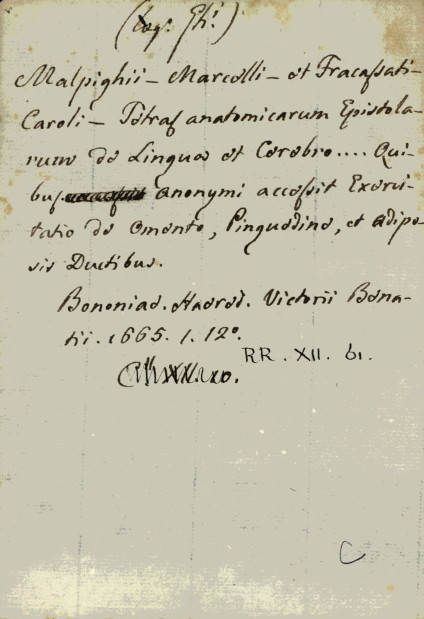 Malpighii – Marcelli – et Fracassati –
Caroli – Tetras anatomicarum Epistola-
rum de Lingua et Cerebro.... Qui-
bus anonymi accessit Exerci-
tatio de Omento, Pinguedine, et adipo-
sis Ductibus.
Bononiae. Haered. Victorii Bena-
tii. 1665. 1. 12°.
RR. XII. 61.
C